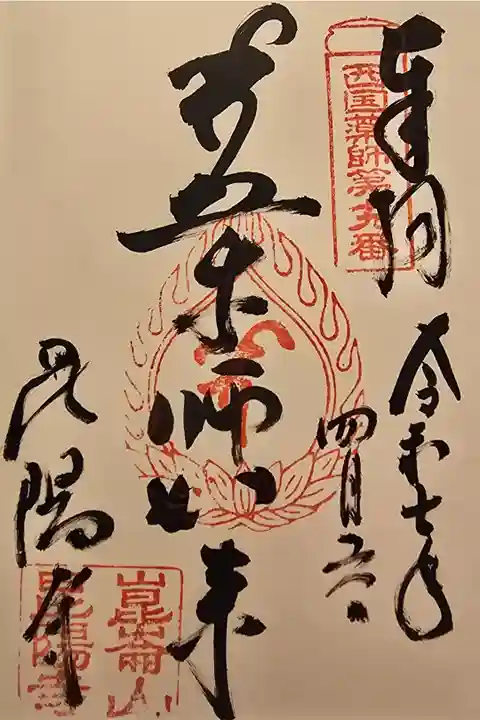 奉拝
西国薬師第十九番
令和七年
四月
薬師如来
昆陽寺
崑崙山
昆陽寺